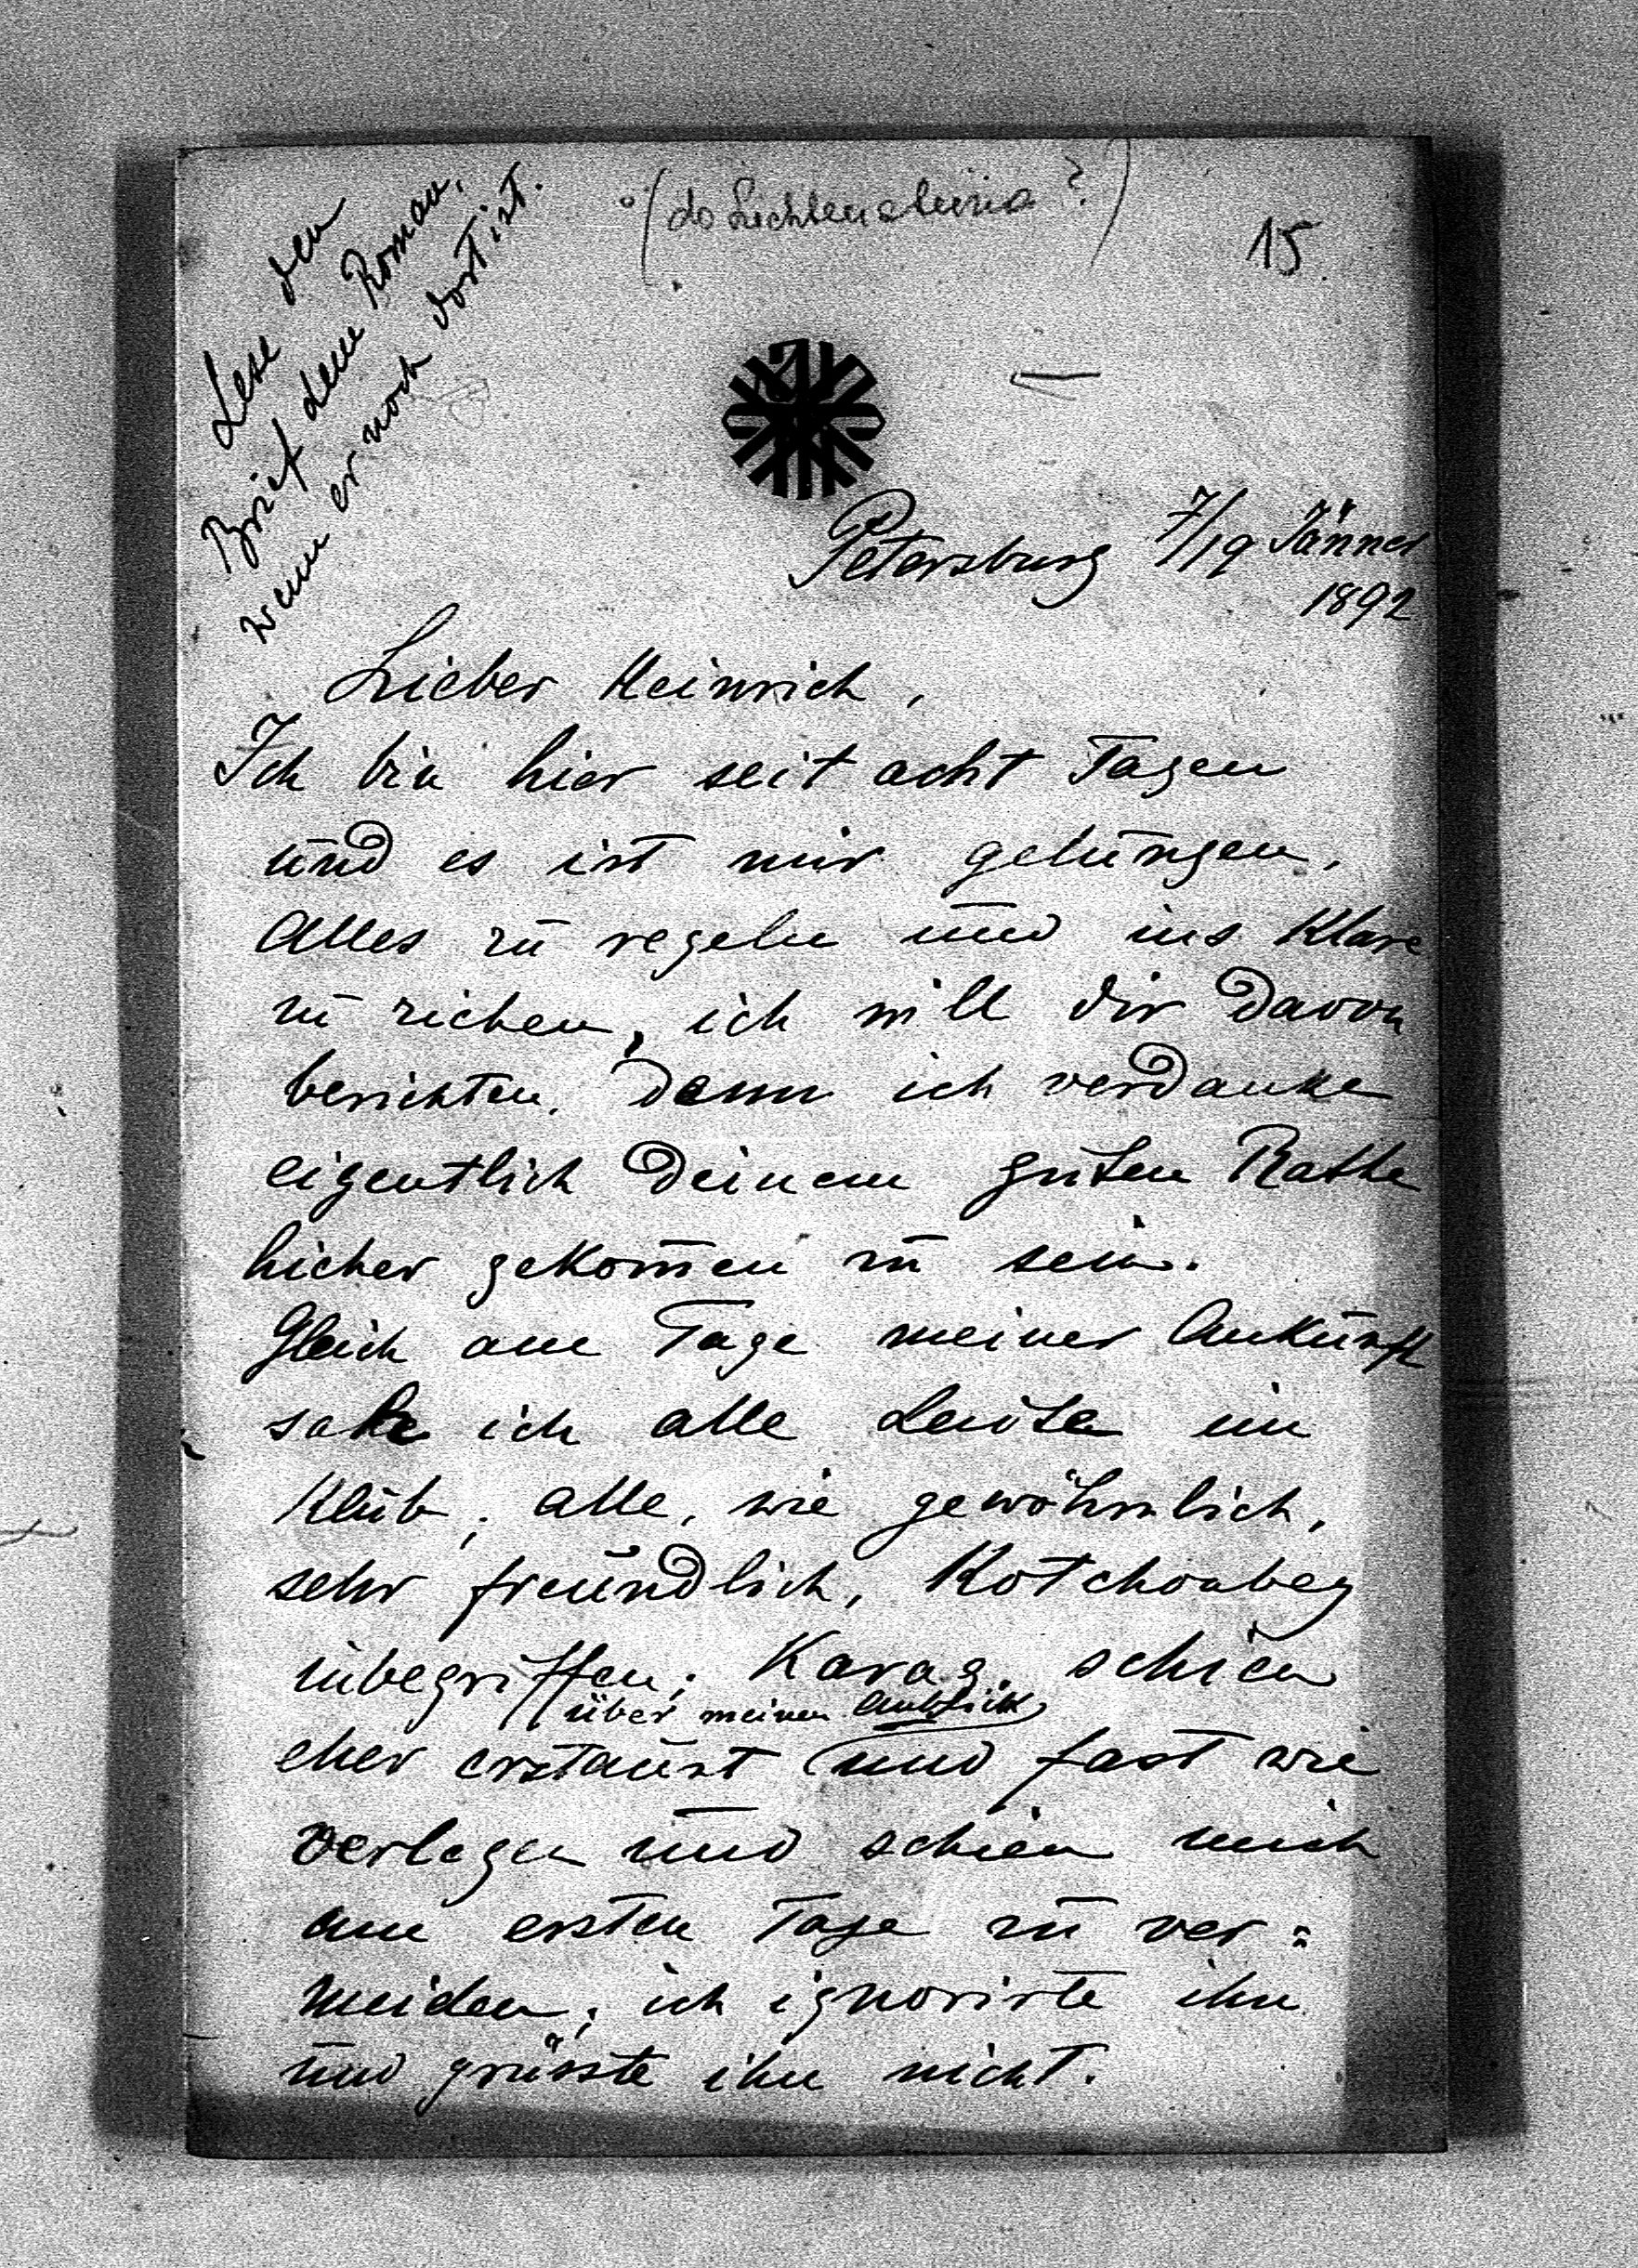 (do Lichtensteina ?)
15.
Lese den
Brief dem Roman,
wenn er noch dort ist.
Petersburg 7/19 Jänner
1892
Lieber Heinrich,
Ich bin hier seit acht Tagen
und es ist mir gelungen,
Alles zu regeln und ins Klare
zu ziehen, ich will dir davon
berichten, denn ich verdanke
eigentlich Deinem guten Rathe
hieher gekom̄en zu sein.
Gleich am Tage meiner Ankunft
sah ich alle Leute im
Klub; alle, wie gewöhnlich,
sehr freundlich, Kotchoubey
inbegriffen; Karag. schien
über meinen Anblick
eher erstaunt und fast wie
verlegen und schien mich
am ersten Tage zu ver=
meiden; ich ignorirte ihn
und grüsste ihn nicht.